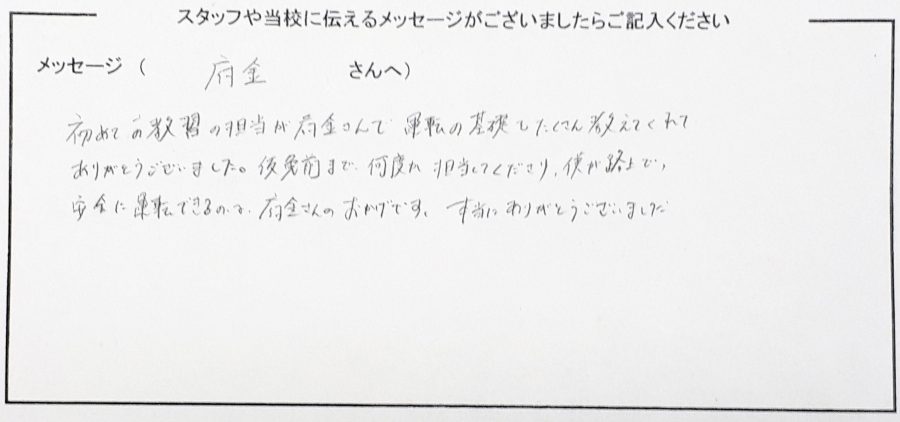 スタッフや当校に伝えるメッセージがございましたらご記入ください
メッセージ（ 府金 さんへ）
初めての教習の担当が府金さんで 運転の基礎もたくさん教えてくれて
ありがとうございました。仮免前まで、何度か担当してくださり、僕が路上で、
安全に運転できるのも、府金さんのおかげです。本当にありがとうございました